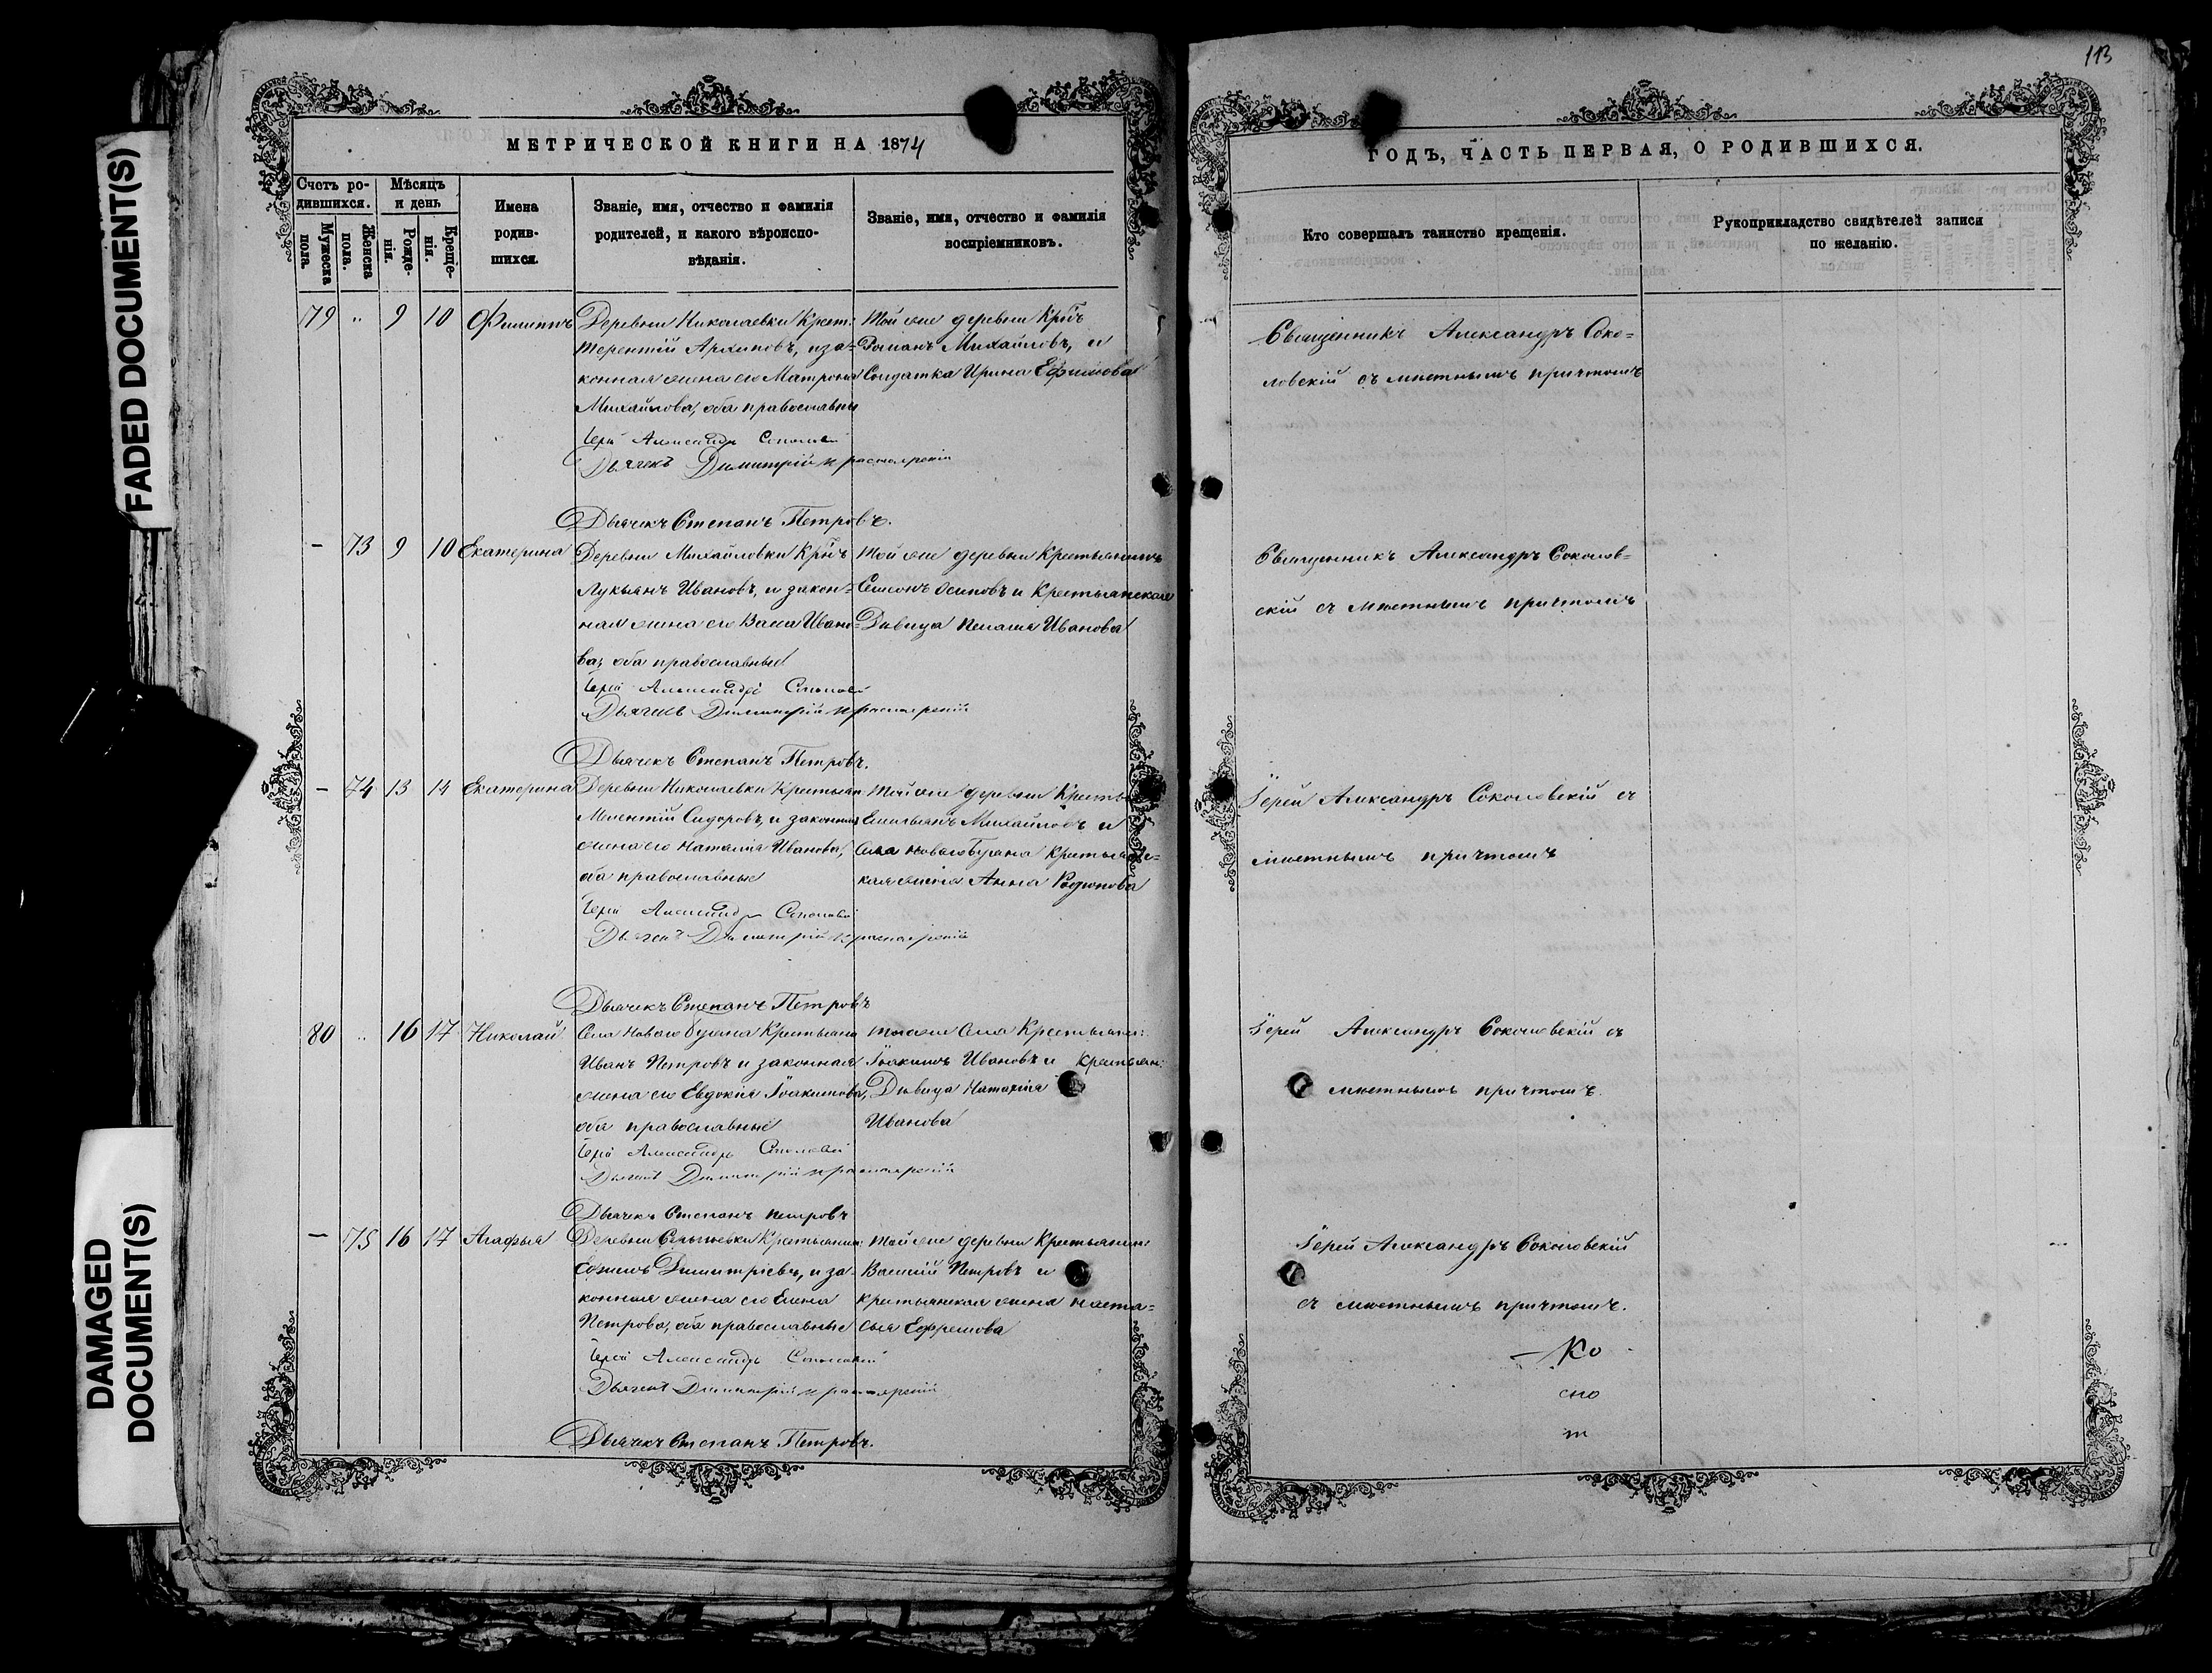 113
МЕТРИЧЕСКОЙ КНИГИ НА 1874
ГОДЪ, ЧАСТЬ ПЕРВАЯ, О РОДИВШИХСЯ.
Счетъ ро-
дившихся.
Мужеска
пола.
Женска
пола.
Мѣсяцъ
и день
Рожде-
нія.
Креще-
нія.
Имена
родив-
шихся.
Званіе, имя, отчество и фамилія
родителей, и какого вѣроиспо-
вѣданія.
Званіе, имя, отчество и фамилія
воспріемниковъ.
Кто совершалъ таинство крещенія.
Рукоприкладство свидѣтелей записи
по желанію.
79 „ 9 10 Филиппъ
Деревни Николаевки Крест:
Терентій Архиповъ, и за-
конная жена его Матрона
Михайлова, оба православны
Іерей Александръ
Дьячекъ Димитрій
Дьячекъ Степанъ Петровъ.
Той же деревни Кр:нъ
Романъ Михайловъ, и
Солдатка Ирина Ефимова
Священникъ Александръ Соко-
ловскій съ мѣстнымъ причтомъ
- 73 9 10 Екатерина
Деревни Михайловки Кр:нъ
Лукьянъ Ивановъ, и закон-
ная жена его Васса Ивано-
ва, оба православные
Іерей Александръ
Дьячекъ Димитрій
Дьячекъ Степанъ Петровъ.
Той же деревни Крестьянинъ
Семенъ Осиповъ и Крестьянская
Дѣвица Пелагія Иванова
Священникъ Александръ Соколов-
скій съ мѣстнымъ причтомъ
- 74 13 14 Екатерина
Деревни Николаевки Крестьян
Мелентій Сидоровъ, и законная
жена его Наталія Иванова,
оба православные
Іерей Александръ
Дьячекъ Димитрій
Дьячекъ Степанъ Петровъ
Той же деревни Кресть
Емельянъ Михайловъ и
Села Новаго Буяна Крестьянс-
кая жена Анна Родионова
Іерей Александръ Соколовскій съ
мѣстнымъ причтомъ
80 „ 16 17 Николай
Села Новаго Буяна Крестьянин
Иванъ Петровъ и законная
жена его Евдокія Іоакимова,
оба православные
Іерей Александръ
Дьячекъ Димитрій
Дьячекъ Степанъ Петровъ
Того же Села Крестьянин:
Іоакимъ Ивановъ и Крестьян:
Дѣвица Наталія
Иванова
Іерей Александръ Соколовскій съ
мѣстнымъ причтомъ.
- 75 16 17 Агафья
Деревни Крестьянин:
Димитріевъ, и за-
конная жена его Елена
Петрова, оба православные
Іерей Александръ
Дьячекъ Димитрій
Дьячекъ Степанъ Петровъ.
Той же деревни Крестьянин:
Василій Петровъ и
крестьянская жена Наста-
сья Ефремова
Іерей Александръ Соколовскій
съ мѣстнымъ причтомъ.
FADED DOCUMENT(S)
DAMAGED
DOCUMENT(S)